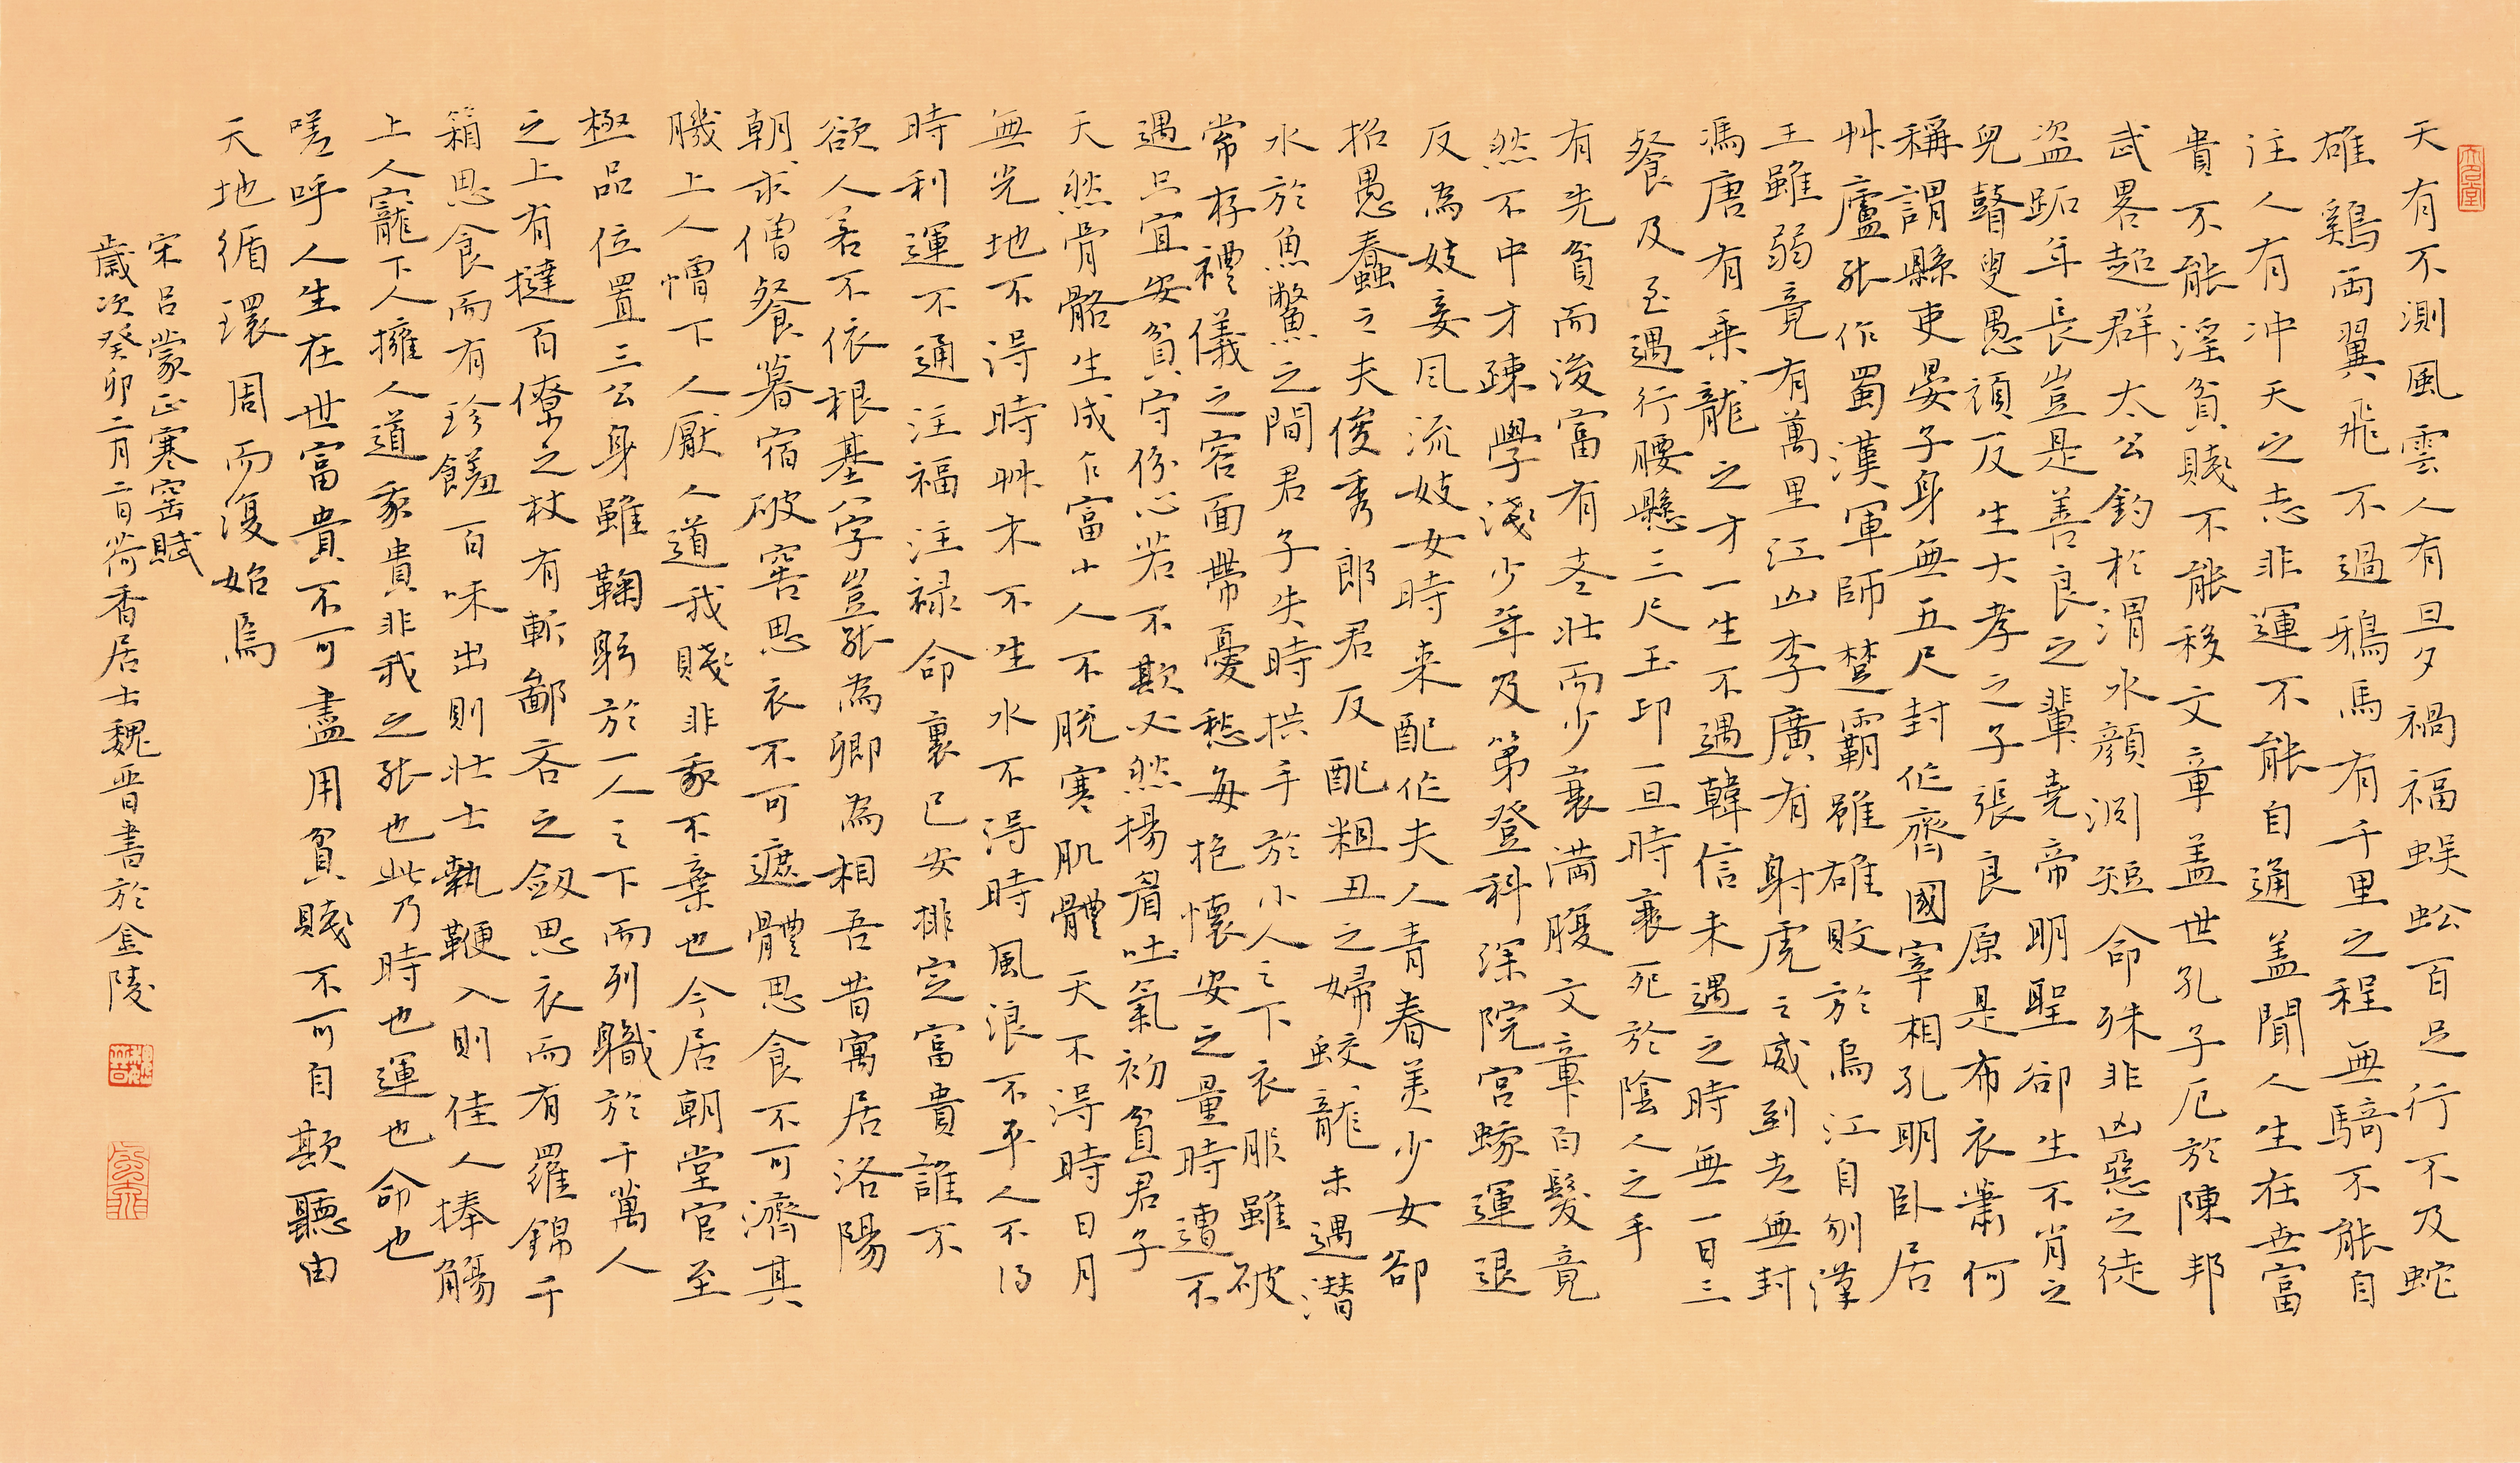 天有不測風雲人有旦夕禍福蜈蚣百足行不及蛇
雄鷄両翼飛不過鴉馬有千里之程無騎不能自
注人有冲天之志非運不能自通盖聞人生在世富
貴不能淫貧賤不能移文章盖世孔子厄於陳邦
武畧超群太公釣於渭水顏渕短命殊非凶惡之徒
盗跖年長豈是善良之輩堯帝明聖卻生不肖之
兒瞽叟愚頑反生大孝之子張良原是布衣蕭何
稱謂縣吏晏子身無五尺封作齊國宰相孔明卧居
艸廬張作蜀漢軍師楚霸雖雄敗於烏江自刎漢
王雖弱竟有萬里江山李廣有射虎之威到老無封
馮唐有乗龍之才一生不遇韓信未遇之時無一日三
餐及至遇行腰懸三尺玉印一旦時衰死於陰人之手
有先貧而後富有老壯而少衰満腹文章白髮竟
然不中才疎學淺少年及第登科深院宮蛾運退
反為妓妾風流妓女時来配作夫人青春美少女卻
招愚蠢之夫俊秀郎君反配粗丑之婦蛟龍未遇潛
水於魚鱉之間君子失時拱手於小人之下衣服雖破
常存禮儀之容面帶憂愁每抱懷安之量時遭不
遇只宜安貧守份心若不欺必然揚眉吐氣初貧君子
天然骨骼生成乍富小人不脫寒肌體天不得時日月
無光地不得時艸木不生水不得時風浪不平人不得
時利運不通注福注禄命裏已安排定富貴誰不
欲人若不依根基八字豈張為卿為相吾昔寓居洛陽
朝求僧餐暮宿破窖思衣不可遮體思食不可濟其
飢上人憎下人厭人道我賤非我不棄也今居朝堂官至
極品位置三公身雖鞠躬於一人之下而列職於千萬人
之上有撻百僚之杖有斬鄙吝之劔思衣而有羅錦千
箱思食而有珍饈百味出則壯士執鞭入則佳人捧觴
上人寵下人擁人道我貴非我之張也此乃時也運也命也
嗟呼人生在世富貴不可盡用貧賤不可自欺聽由
天地循環周而復始焉
宋呂蒙正寒窑賦
歲次癸卯二月二日荷香居士魏晋書於金陵